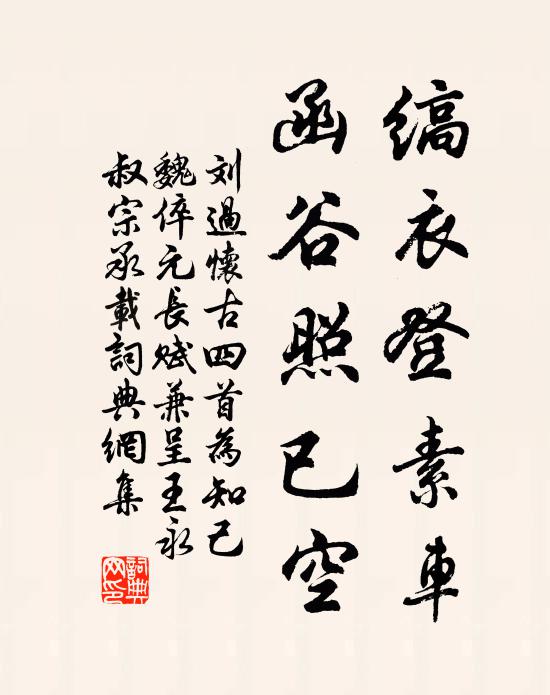 缟衣登素車
函谷照已空
刘過懷古四首為知己
魏倅元長賦兼呈王永
叔宗承載詞典網集
詞典网印